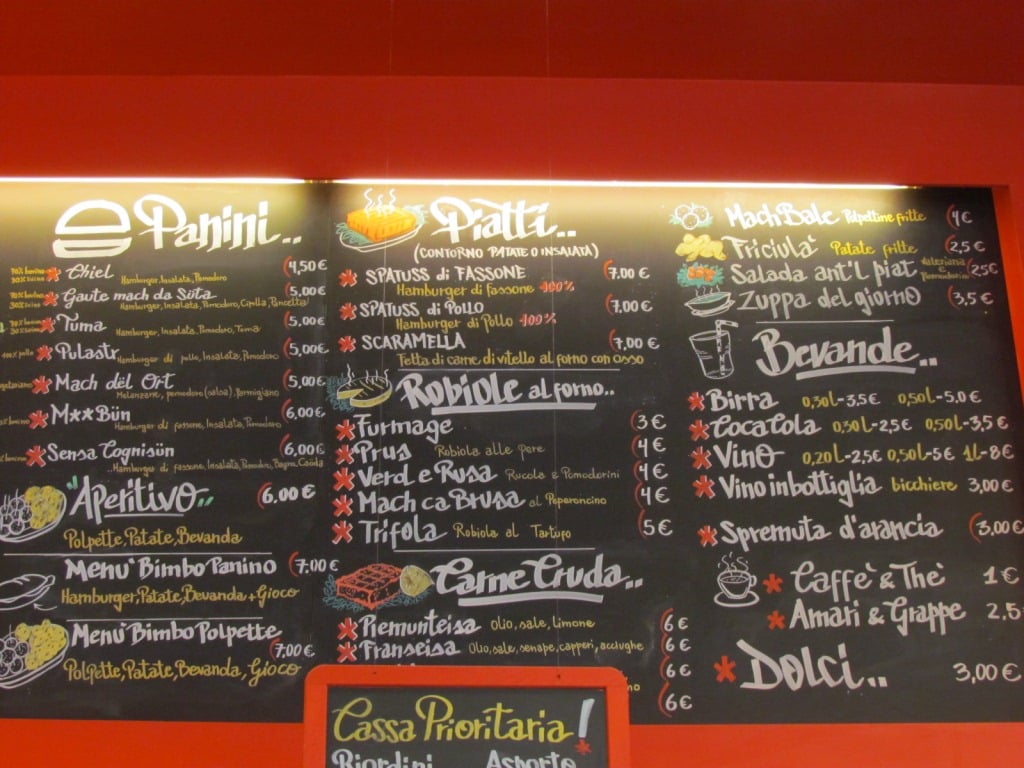 Panini..
Chiel Hamburger, Insalata, Pomodoro (4,50€
Gaute mach da Süta (5,00€
Hamburger, Insalata, Pomodoro, Cipolla, Pancetta
Tuma Hamburger, Insalata, Pomodoro, Tuma (5,00€
Pulastr Hamburger di pollo, Insalata, Pomodoro (5,00€
Mach dël Ort (5,00€
Melanzane, pomodoro (salsa), Parmigiano
M**Bün (6,00€
Hamburger di fassone, Insalata, Pomodoro
Sensa Cognisün (6,00€
Hamburger di fassone, Insalata, Pomodoro, Bagna Caöda
"Aperitivo" (6.00€
Polpette, Patate, Bevanda
Menu' Bimbo Panino (7,00€
Hamburger, Patate, Bevanda + Gioco
Menu' Bimbo Polpette
(7,00€
Polpette, Patate, Bevanda, Gioco
Piatti..
(CONTORNO PATATE O INSALATA)
SPATUSS di FASSONE (7,00€
Hamburger di fassone 100%
SPATUSS di POLLO (7,00€
Hamburger di Pollo 100%
SCARAMELLA (7,00€
Fetta di carne di vitello al forno con osso
Robiole al forno..
Furmage (3€
Prus Robiola alle pere (4€
Verd e Rusa Rucola e Pomodorini (4€
Mach ca Brusa al Peperoncino (4€
Trifola Robiola al Tartufo (5€
Carne Cruda..
Piemunteisa olio, sale, limone (6€
Franseisa Olio, sale, senape, capperi, acciughe (6€
(6€
(6€
Mach Bale Polpettine fritte (4€
Friciula' Patate fritte (2,5€
Salada ant'l piat Valeriana e Pomodorini (2,5€
Zuppa del giorno (3,5€
Bevande..
Birra 0,30L-3,5€ 0,50L-5.0€
CocaCola 0,30L-2,5€ 0,50L-3,5€
Vino 0,20L-2,5€ 0,50L-5€ 1L-8€
Vino in bottiglia bicchiere 3,00€
Spremuta d'arancia (3,00€
Caffè & Thè 1€
Amari & Grappe 2,5
Dolci.. 3,00€
Cassa Prioritaria!
Riordini Asporto